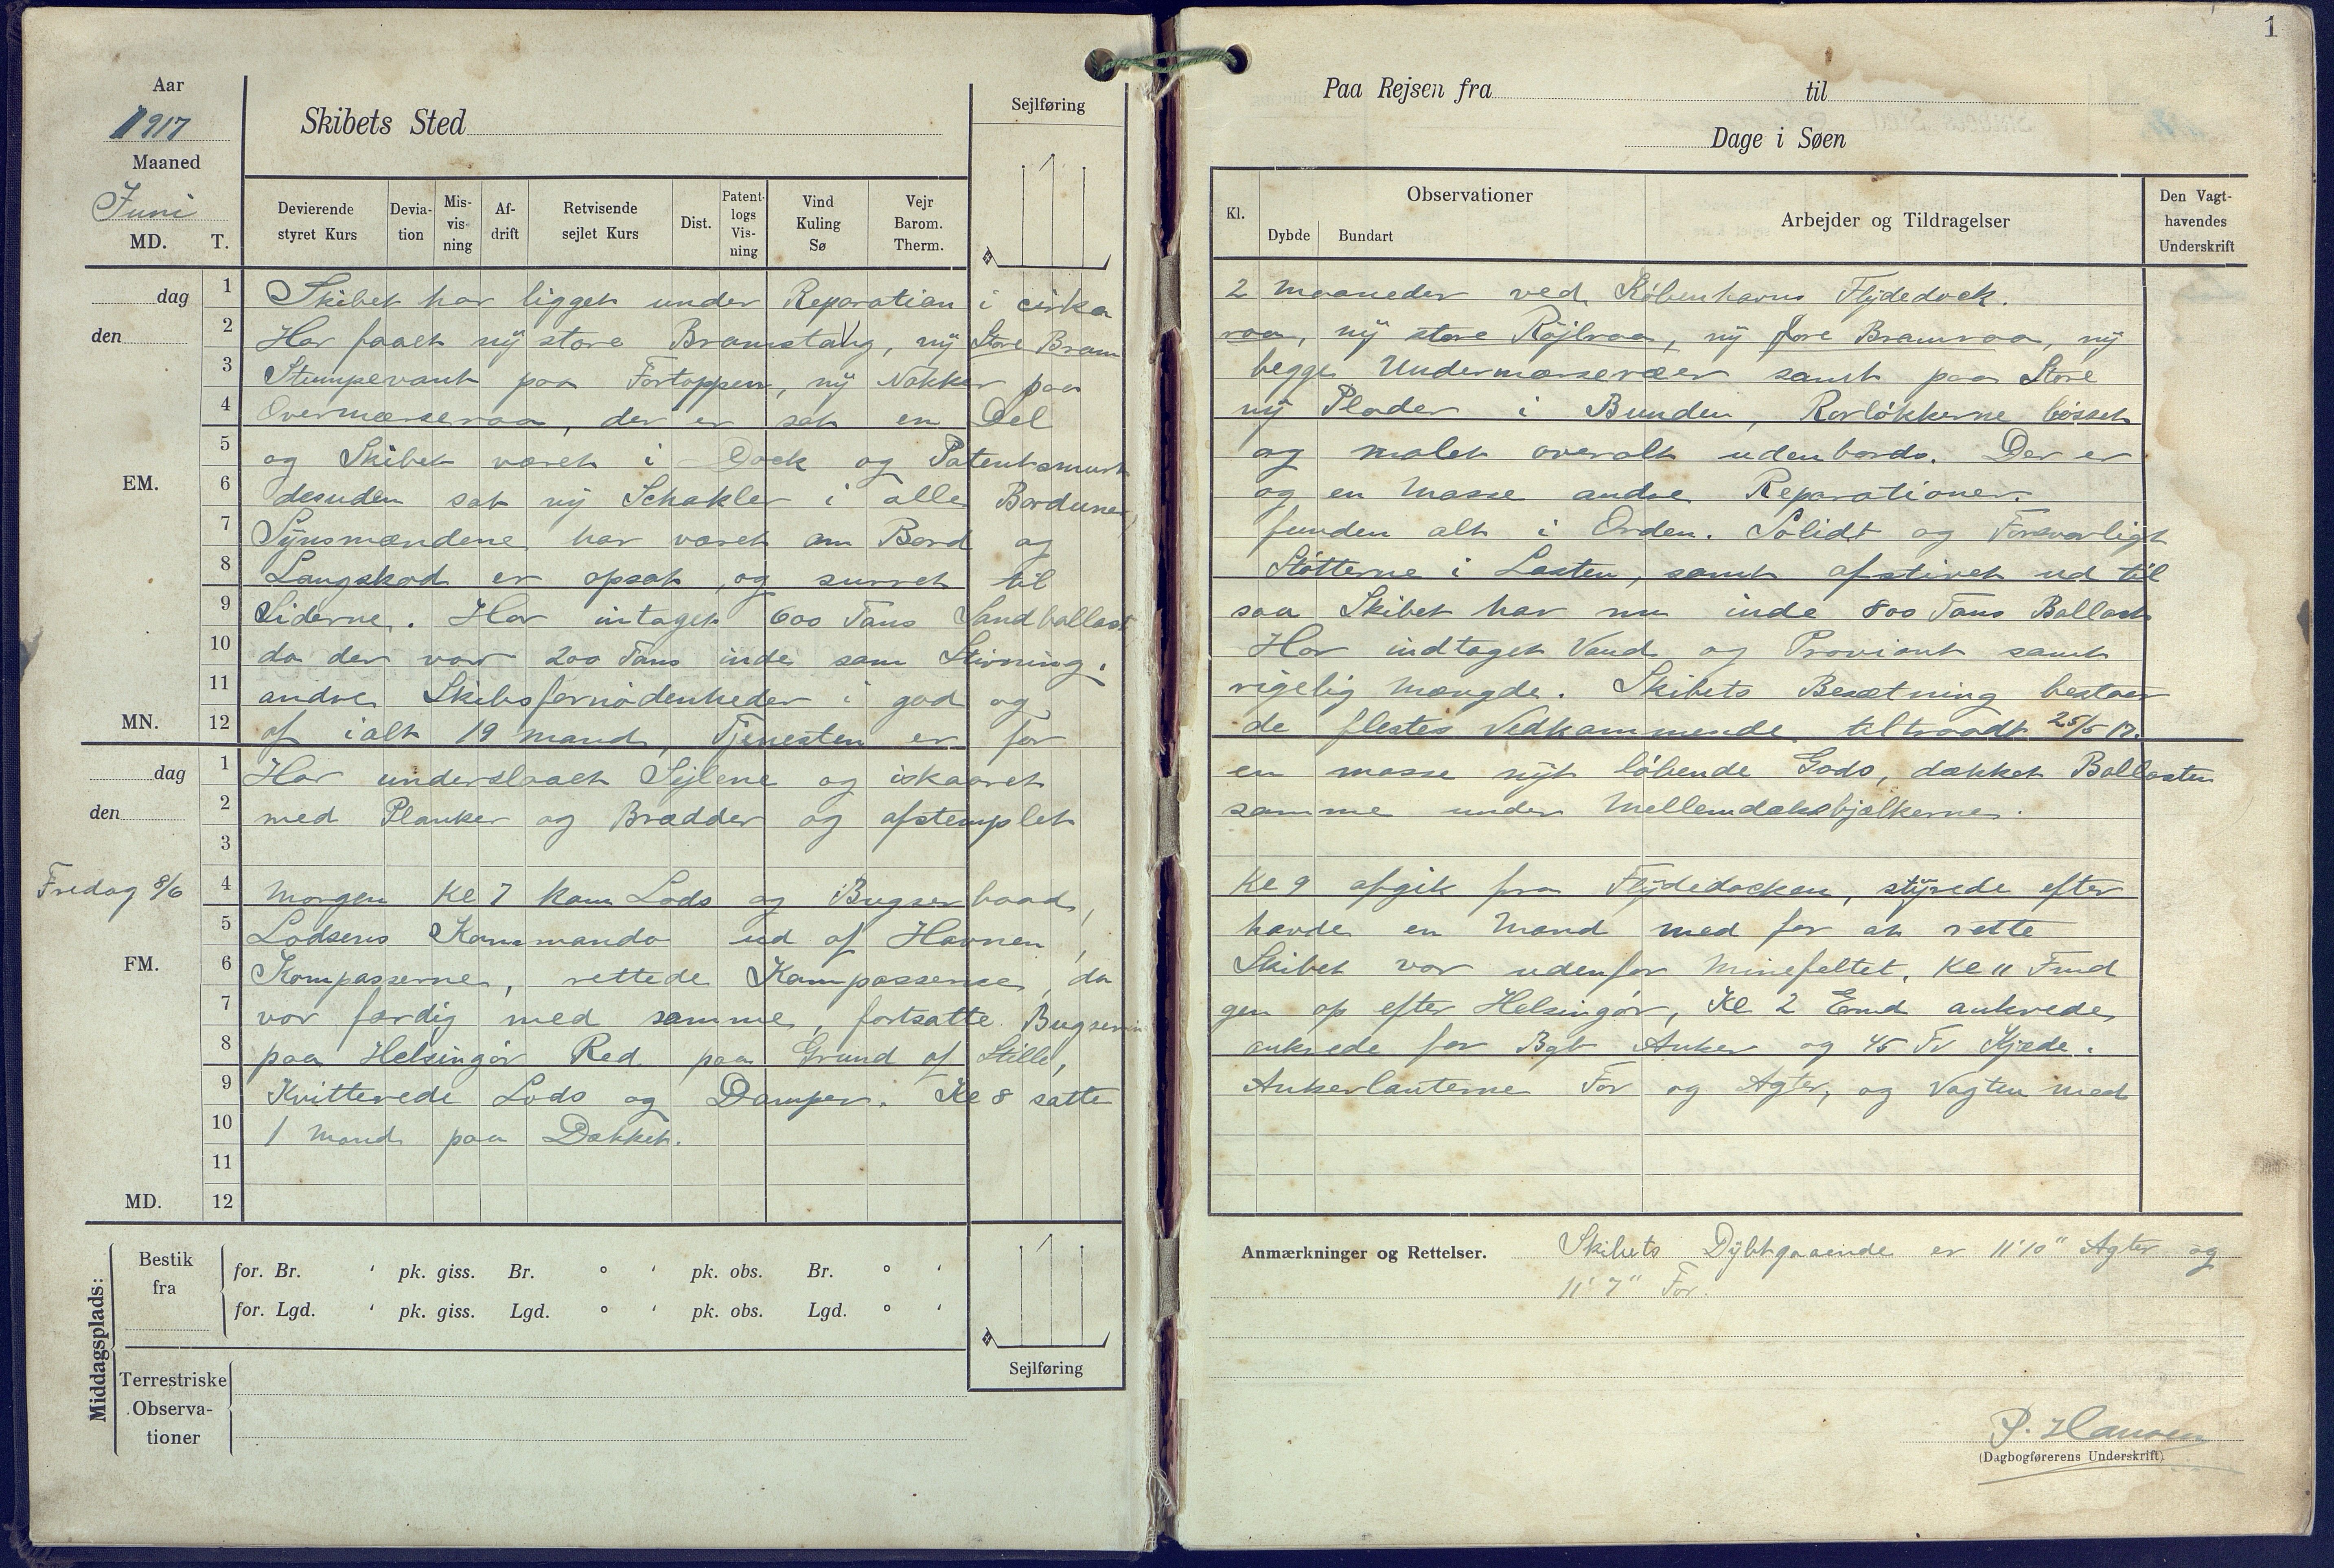 1
Aar
1917
Maaned
Juni
MD. T.
Skibets Sted
Sejlføring
Devierende styret Kurs
Devia- tion
Mis- vis- ning
Af- drift
Retvisende sejlet Kurs
Dist.
Patent- logs Vis- ning
Vind Kuling Sø
Vejr Barom. Therm.
Paa Rejsen fra til
Dage i Søen
Kl.
Observationer
Dybde Bundart
Arbejder og Tildragelser
Den Vagt- havendes Underskrift
dag
den
1 Skibet har ligget under Reparation i cirka 2 Maaneder ved Københavns Flydedock.
2 Har faaet ny store Bramstang, ny Store Bram raa, ny store Röjlraa, ny fore Bramraa, ny
3 Stumpevant paa Fortoppen, ny Nokker paa begge Undermærseræer samt paa Store
4 Overmærseraa, der er sat en Del ny Plader i Bunden, Rorlökkerne bösset
EM.
5 og Skibet været i Dock og Patentsmurt og malet overalt udenbords. Der er
6 desuden sat ny Schakler i alle Barduner, og en Masse andre Reparationer.
7 Synsmændene har været om Bord og funden alt i Orden. Solidt og Forsvarligt
8 Langskod er opsat, og surret til Støtterne i Lasten, samt afstivet ud til
9 Siderne. Har intaget 600 Tons Sandballast saa Skibet har nu inde 800 Tons Ballast
10 da der var 200 Tons inde som Stivning. Har indtaget Vand og Proviant samt
11 andre Skibsfornödenheder i god og rigelig Mængde. Skibets Besætning bestaar
MN.
12 af ialt 19 Mand, Tjenesten er for de flestes Vedkommende tiltraadt 25/5 17.
dag
den
1 Har underslaaet Sejlene og iskaaret en masse nyt löbende Gods, dækket Ballasten
2 med Planker og Brædder og afstemplet samme under Mellemdæksbjælkerne.
3
Fredag 8/6
4 Morgen Kl 7 kom Lods og Bugserbaad, Kl 9 afgik fra Flydedocken, styrede efter
5 Lodsens Kommando ud af Havnen, havde en Mand med for at rette
FM.
6 Kompasserne, rettede Kompasserne, da Skibet var udenfor Minefeltet. Kl 11 Fmd
7 var færdig med samme, fortsatte Bugserin gen op efter Helsingör, Kl 2 Emd ankrede
8 paa Helsingör Red paa Grund af Stille, ankrede for Bgb Anker og 45 Fv Kjæde.
9 Kvitterede Lods og Damper. Kl 8 satte Ankerlanterne For og Agter, og Vagten med
10 1 Mand paa Dækket.
11
MD.
12
Middagsplads:
Bestik fra
for. Br. ' pk. giss. Br. ° ' pk. obs. Br. ° '
for. Lgd. ' pk. giss. Lgd. ° ' pk. obs. Lgd. ° '
Sejlføring
Terrestriske Observa- tioner
Anmærkninger og Rettelser. Skibets Dybtgaaende er 11' 10" Agter og
11' 7" For.
P. Hansen
(Dagbogførerens Underskrift)